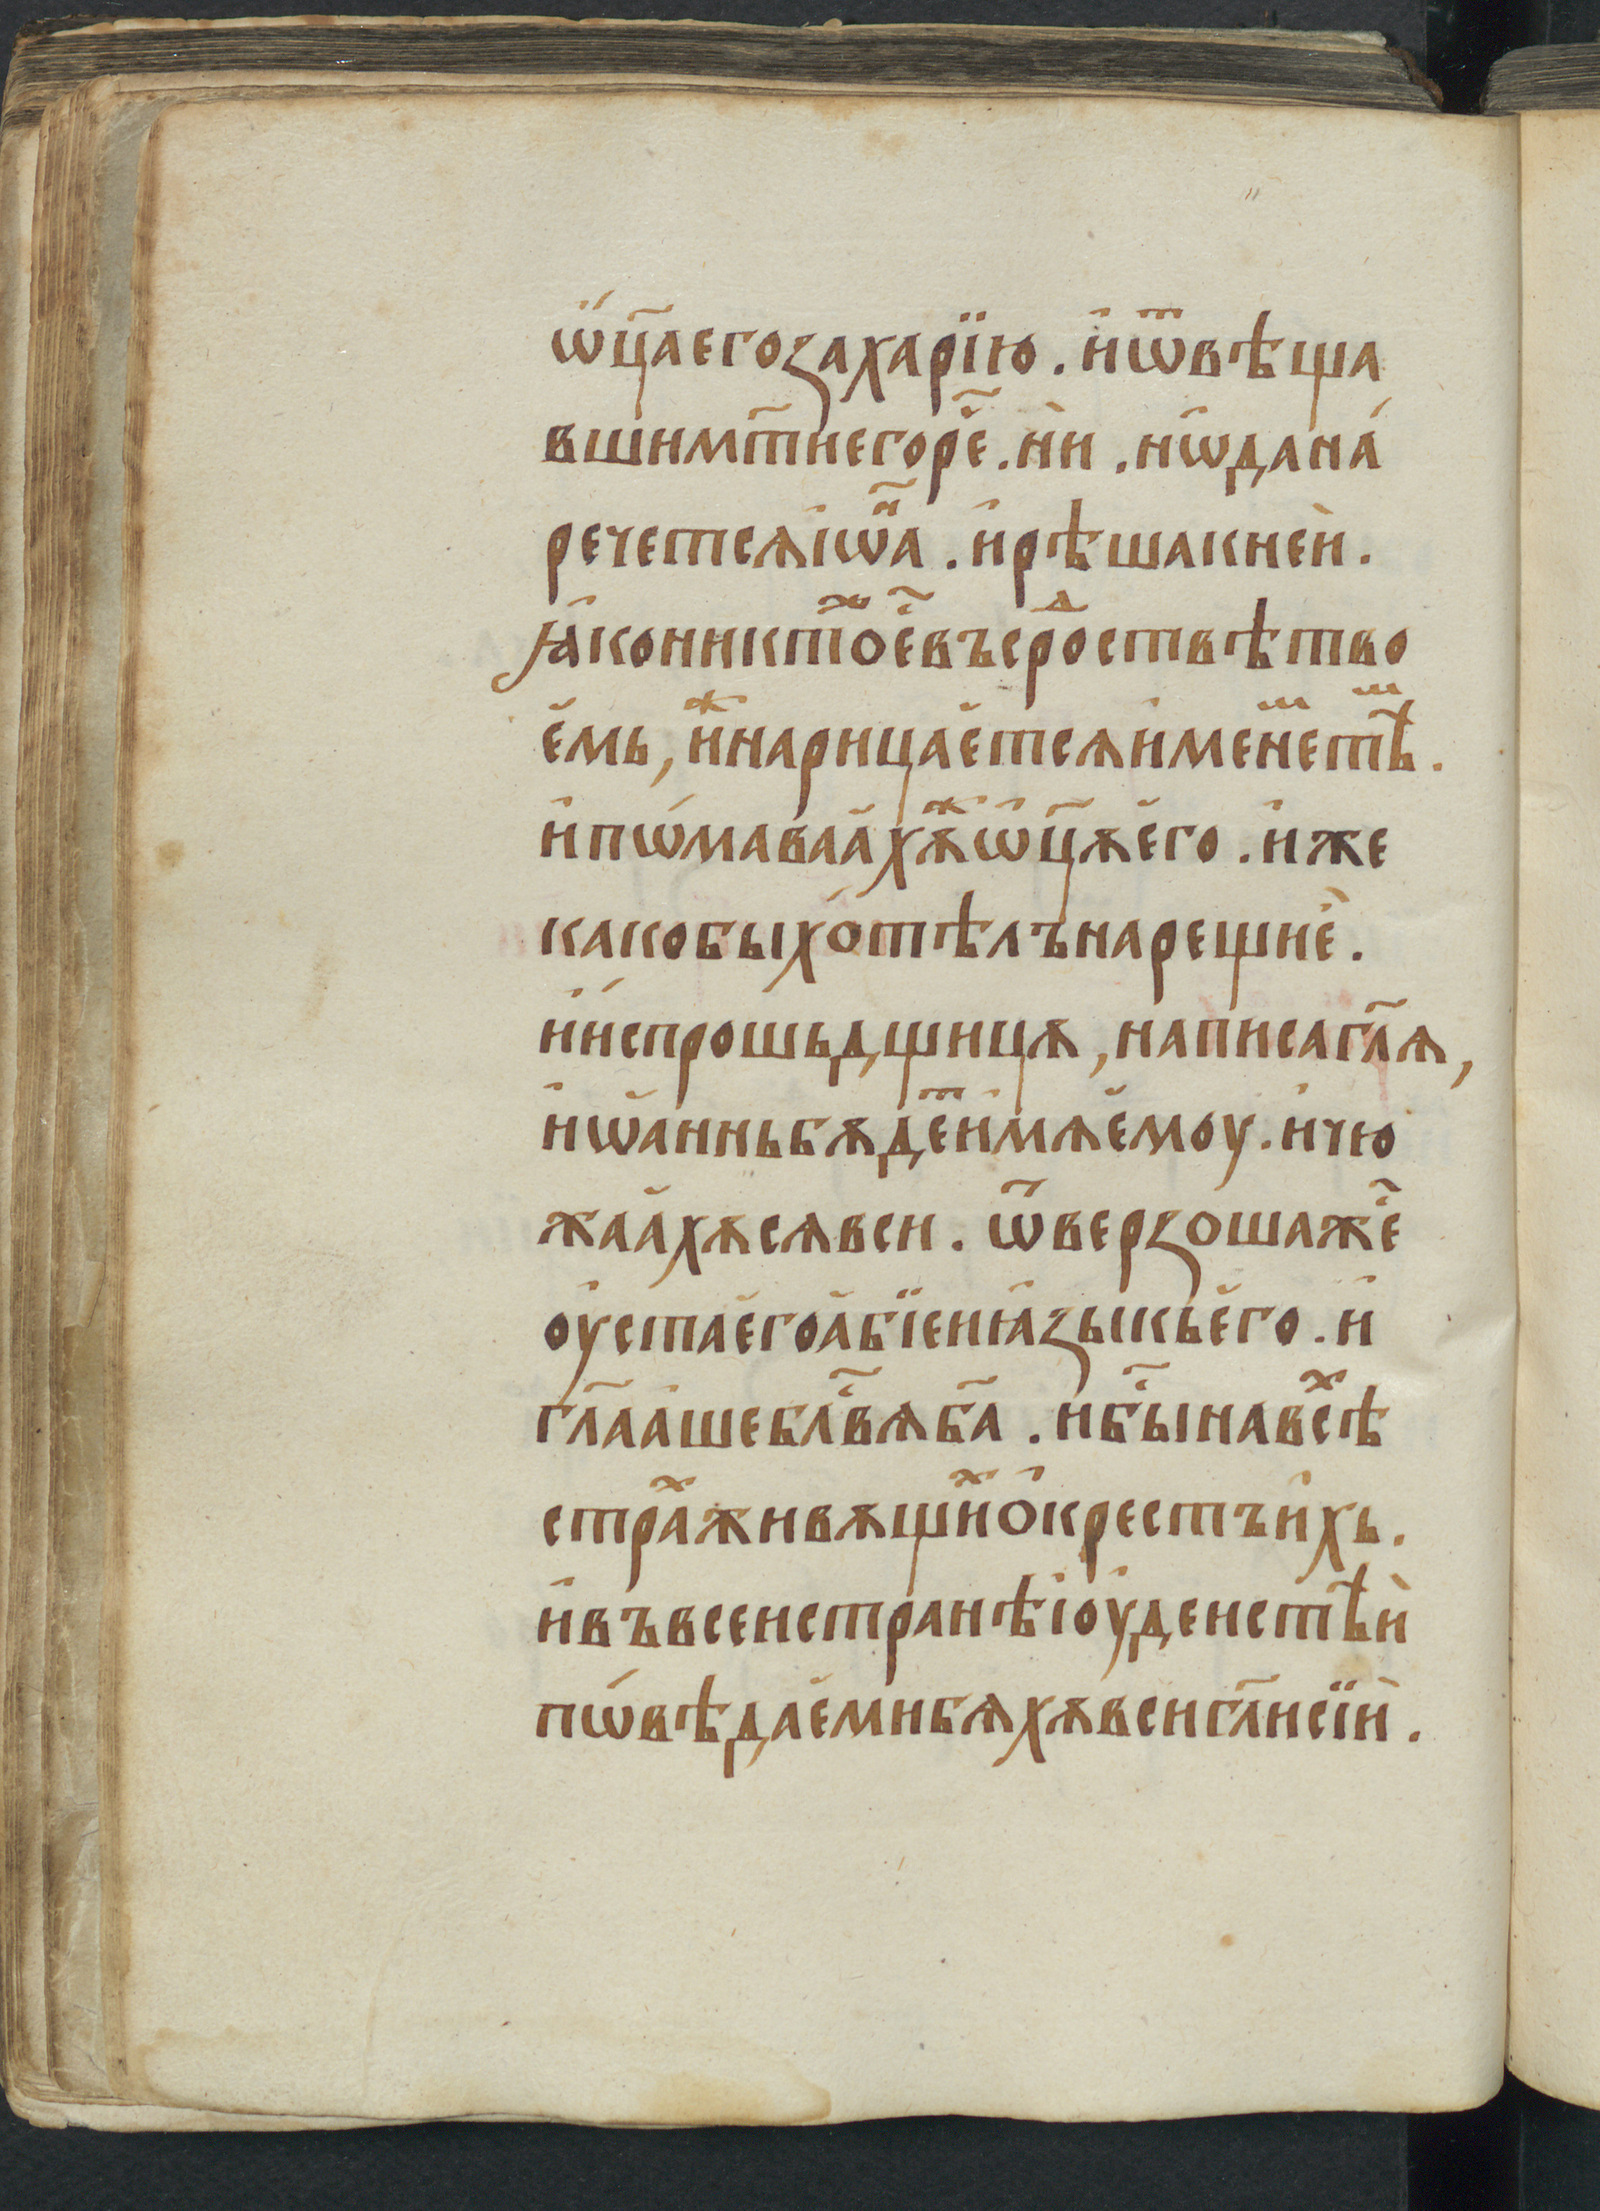 ѡ҆ц҃аегозахарїю . и҆ѿвѣща
вшимт҃иегоре҃ . нѝ . нѡ̑дана́
речетсѧі҆ѡ҃ⷩа . и҆рѣшакней .
ꙗ҆коникто́ⷤе҃въсро́ⷣствѣтво
е҆мь , и҆ⷤнарица́е҆тсѧи҆мене́ⷨстѣ́ⷨ .
и҆пѡ́мавааⷯѫⷤѡ҆ц҃ѫе҆го . и҆же
какобыхо́тѣлънарещѝе .
и҆и҆спрошьдщицѫ , написагл҃ѧ ,
и҆ѡ҆анньбѫде́ⷮи҆мѧе҆моу . и҆чю
жаа҆хѫсѧвси . ѿверзошаже҃
ѹ҆стае҆гоа҆бїеиꙗ҆зыкье҆го . и҆
гл҃аа҆шебл҃вѧб҃а . и҆б҃ынавсѣ́ⷯ
стра́ⷯживѫщи́ⷯо҆крестъи҆хь .
и҆въвсеистранѣі҆ѹ҆деистѣ́и
пѡ́вѣдае҆мибѧхѫвсигл҃исїѝ .